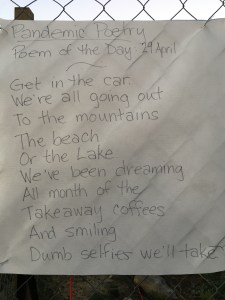 Pandemic Poetry
Poem of the Day 29 April
Get in the car
We're all going out
To the mountains
The beach
Or the Lake
We've been dreaming
All month of the
Takeaway coffees
And smiling
Dumb selfies we'll take